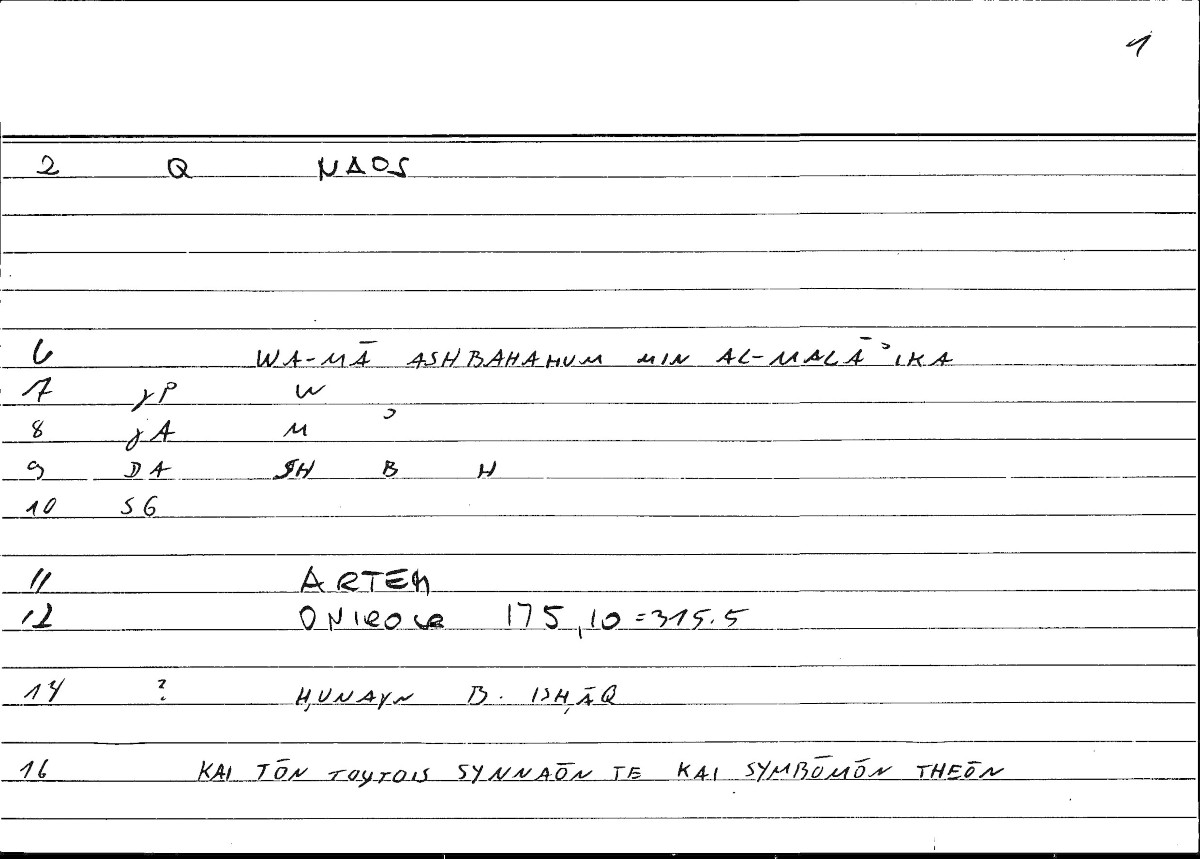 1
2 Q NAOS
6 WA-MĀ ASHBAHAHUM MIN AL-MALĀʾIKA
7 γP W
8 γA M ʾ
9 DA SH B H
10 SG
11 ARTEM
12 ONIROCR 175,10=315.5
14 ? ḤUNAYN B. ISḤĀQ
16 KAI TŌN TOYTOIS SYNNAŌN TE KAI SYMBŌMŌN THEŌN